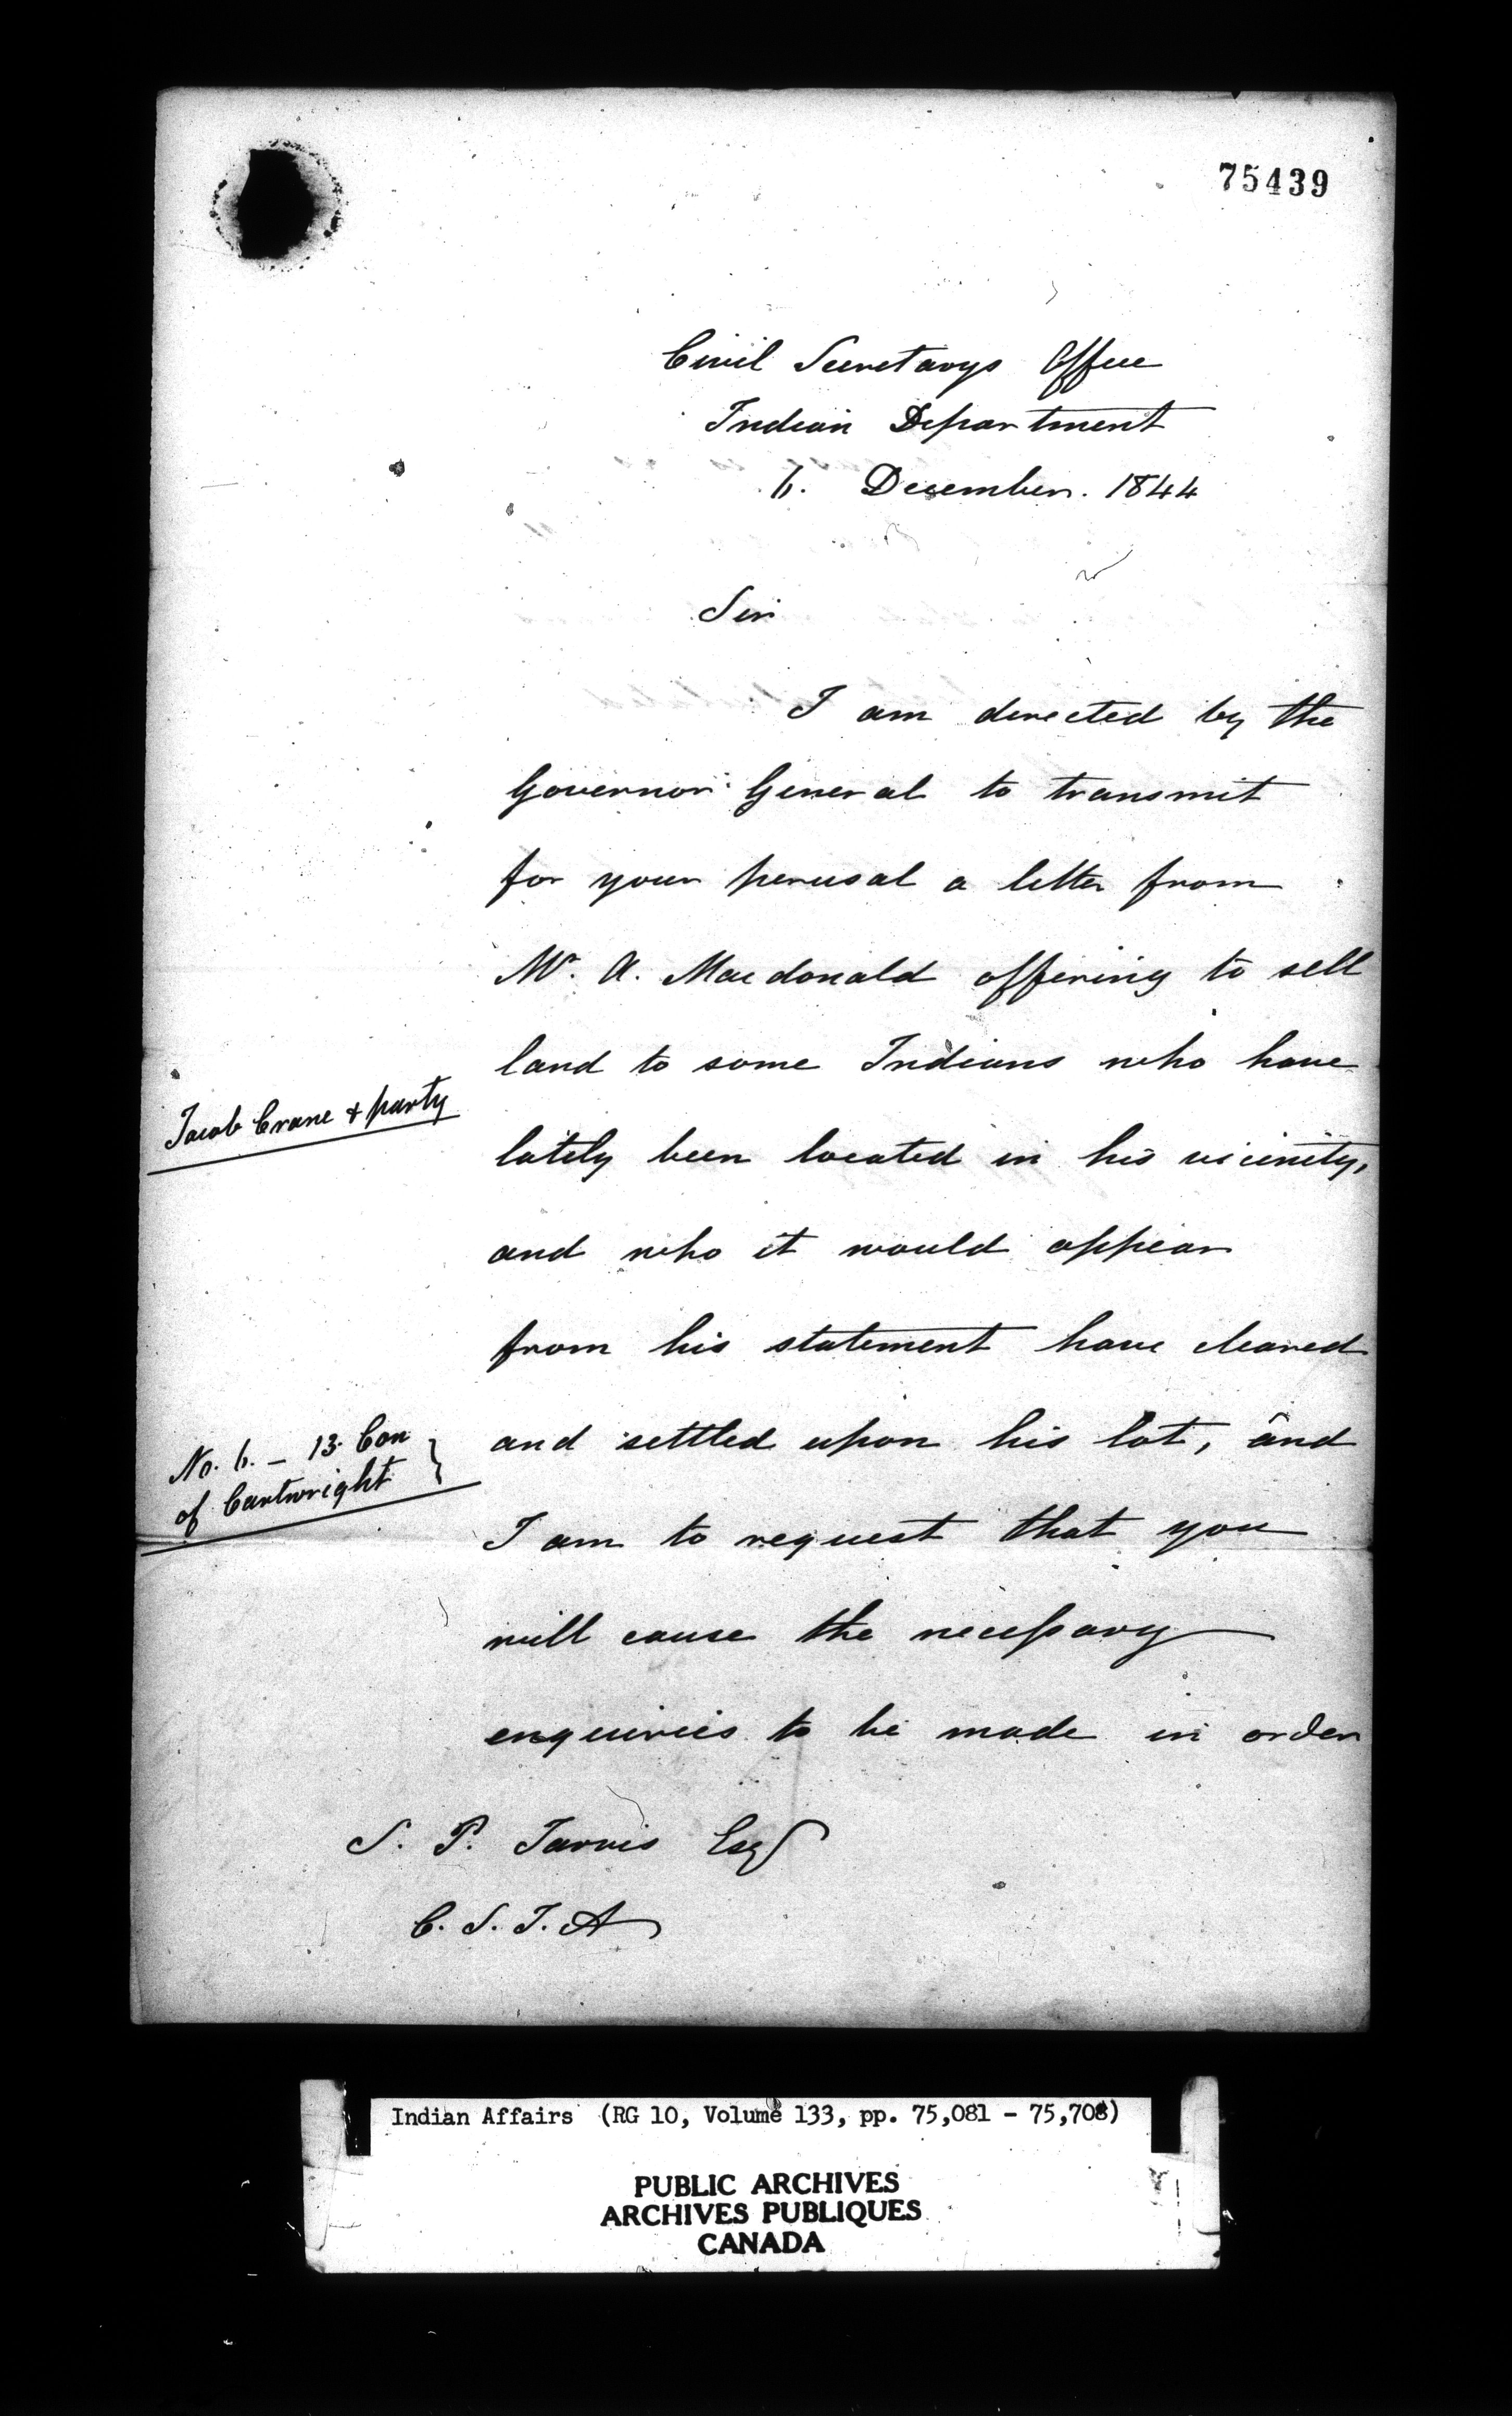 75439
Civil Secretarys Office
Indian Department
6. December. 1844
Sir
I am directed by the
Governor General to transmit
for your perusal a letter from
Mr. A. Macdonald offering to sell
land to some Indians who have
Jacob Crane + party
lately been located in his vicinity,
and who it would appear
from his statement have cleared
No. 6. - 13 Con
of Cartwright
and settled upon his lot, and
I am to request that you
will cause the necessary
enquiries to be made in order
S. P. Jarvis Esq
C. S. I. A
Indian Affairs (RG 10, Volume 133, pp. 75,081 - 75,708)
PUBLIC ARCHIVES
ARCHIVES PUBLIQUES
CANADA